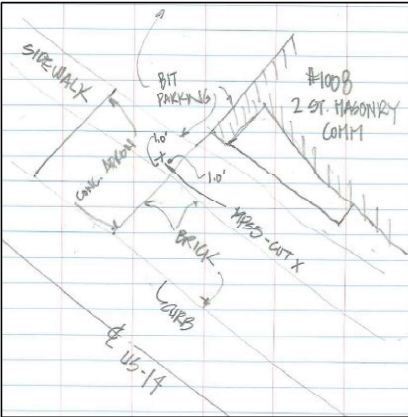 SIDEWALK
BIT
PARKING
#1008
2 ST. MASONRY
COMM
CONC. APRON
1.0'
X
1.0'
BRICK
CUT X
CURB
℄ US-14